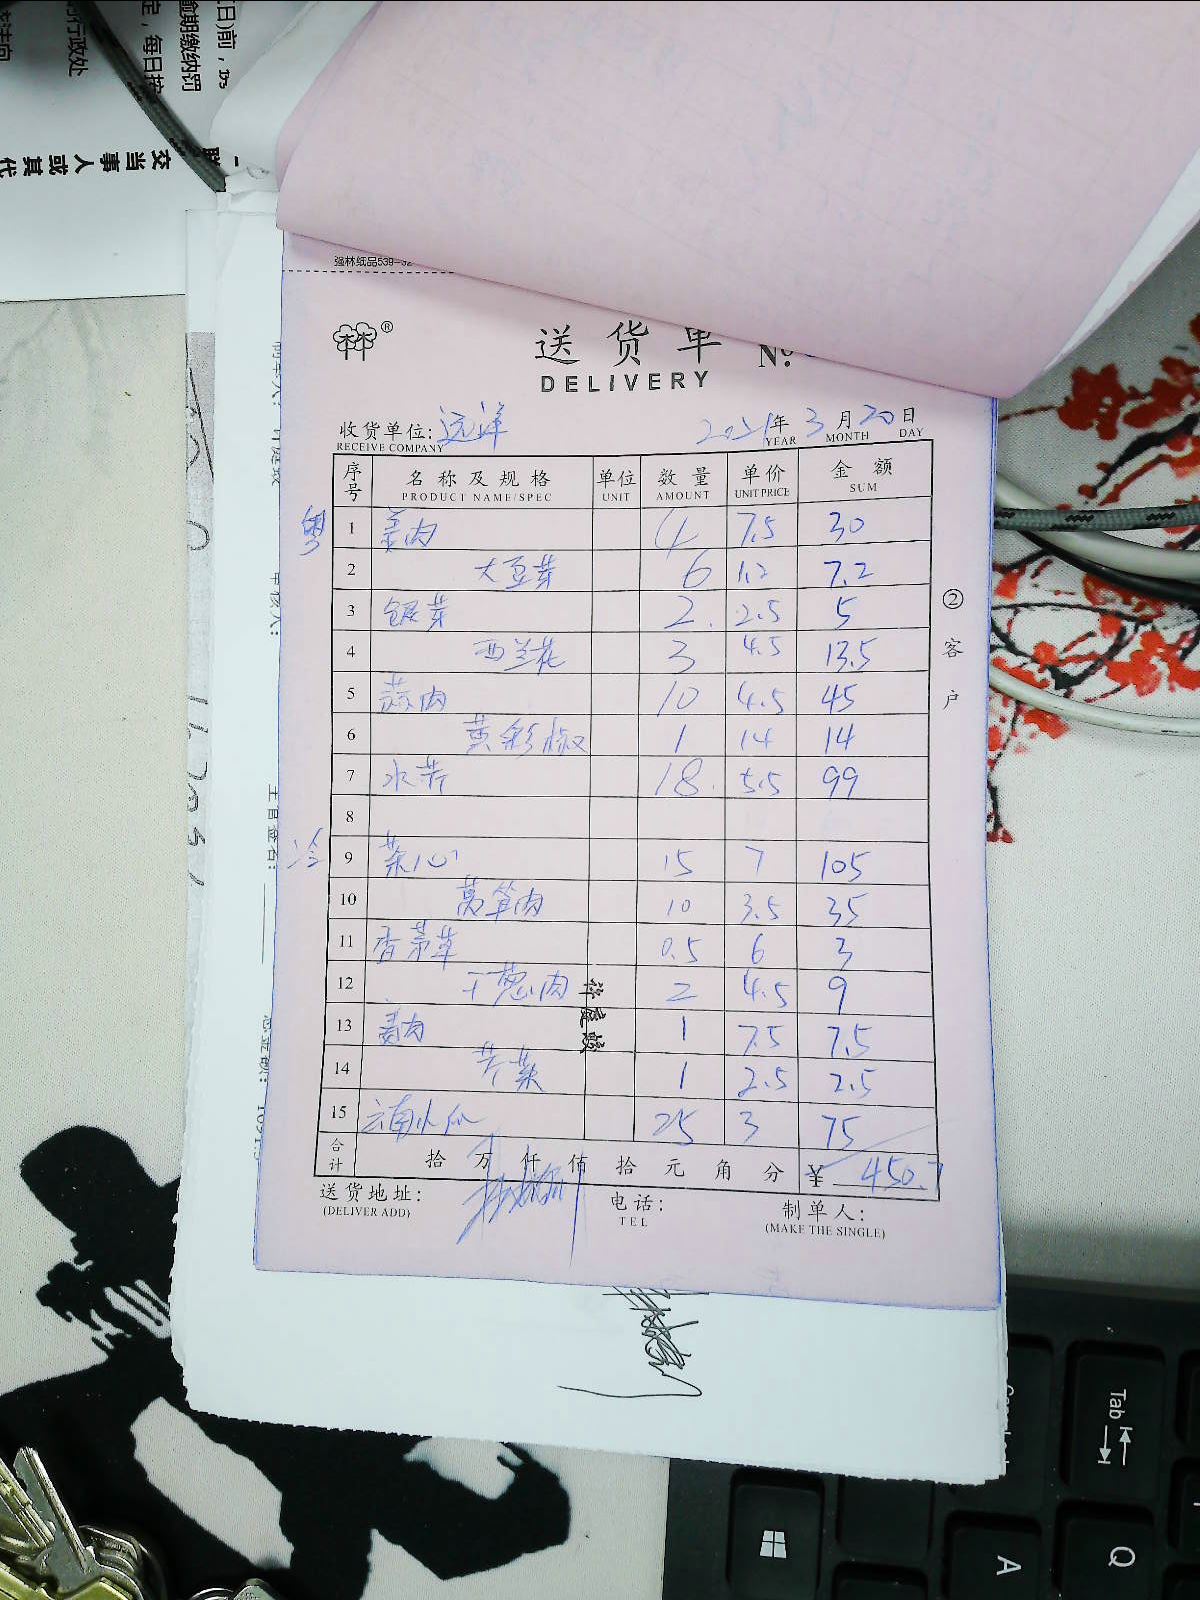 强林纸品539-32
送货单 №:
DELIVERY
收货单位: 远洋 2021年 3月 20日
RECEIVE COMPANY YEAR MONTH DAY
序号 名称及规格 单位 数量 单价 金额
PRODUCT NAME/SPEC UNIT AMOUNT UNIT PRICE SUM
粤 1 姜肉 4 7.5 30
2 大豆芽 6 1.2 7.2
3 银芽 2 2.5 5
4 西兰花 3 4.5 13.5
5 蒜肉 10 4.5 45
6 黄彩椒 1 14 14
7 水芹 18 5.5 99
8
冷 9 菜心 15 7 105
10 莴笋肉 10 3.5 35
11 香茅草 0.5 6 3
12 干葱肉 2 4.5 9
13 姜肉 1 7.5 7.5
14 芹菜 1 2.5 2.5
15 云南小瓜 25 3 75
合计 拾 万 仟 佰 拾 元 角 分 ¥ 450.7
送货地址: 电话: 制单人:
(DELIVER ADD) TEL (MAKE THE SINGLE)
②客户
许庭敏
日)前,
逾期缴纳罚
定,每日按
行政处
交当事人或其代
审核人:
Tab
Q
A